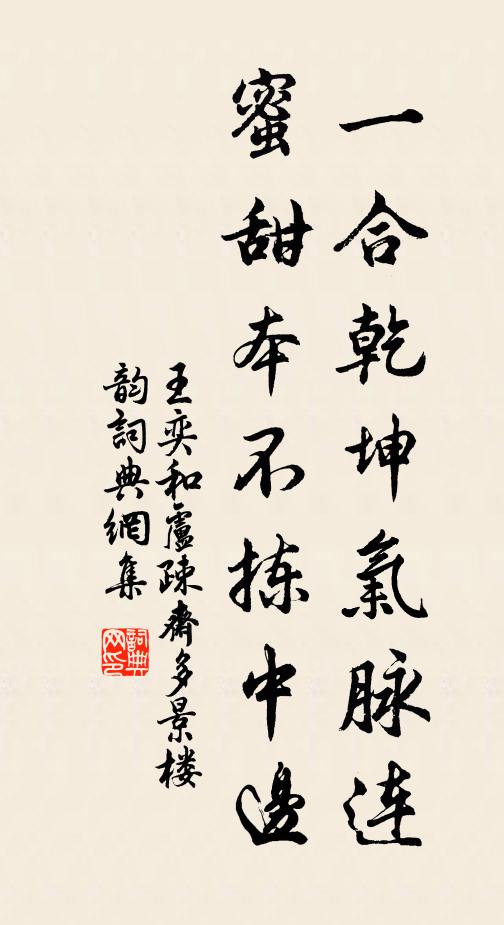 一合乾坤氣脉连
蜜甜本不拣中邊
王奕和盧疎齋多景楼
韵詞典網集
詞典网印